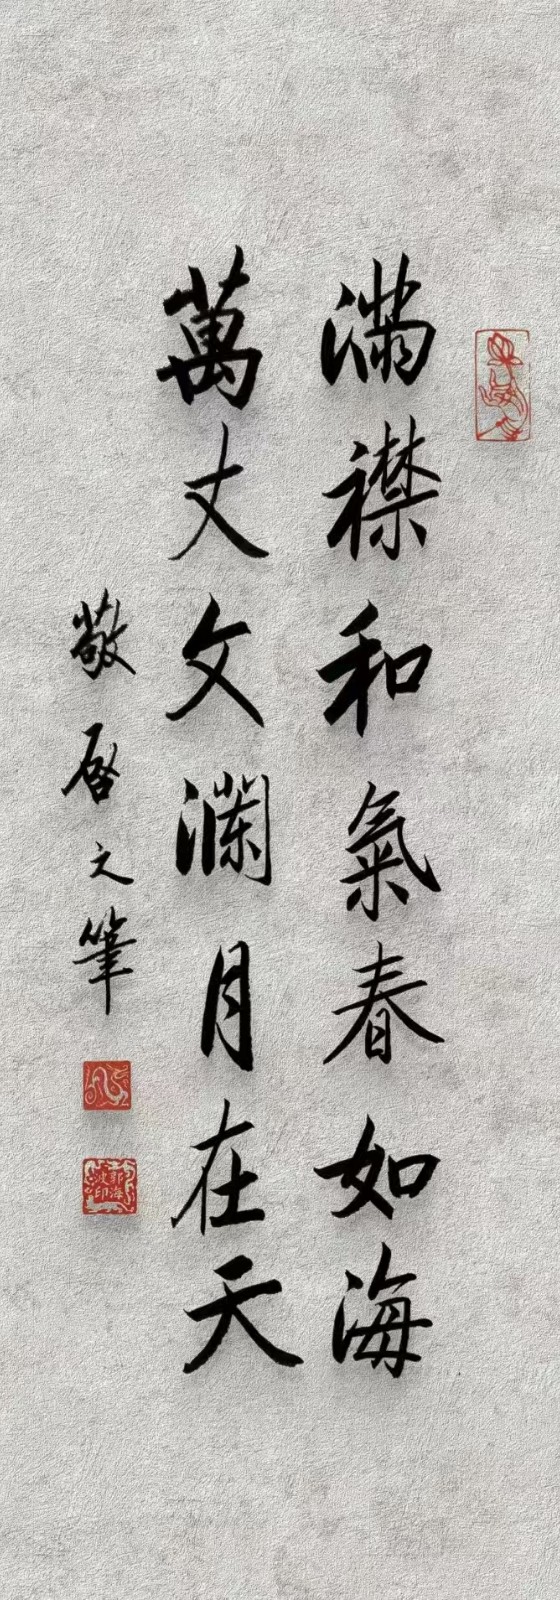 滿襟和氣春如海
萬丈文瀾月在天
敬啓之筆
郭海波印